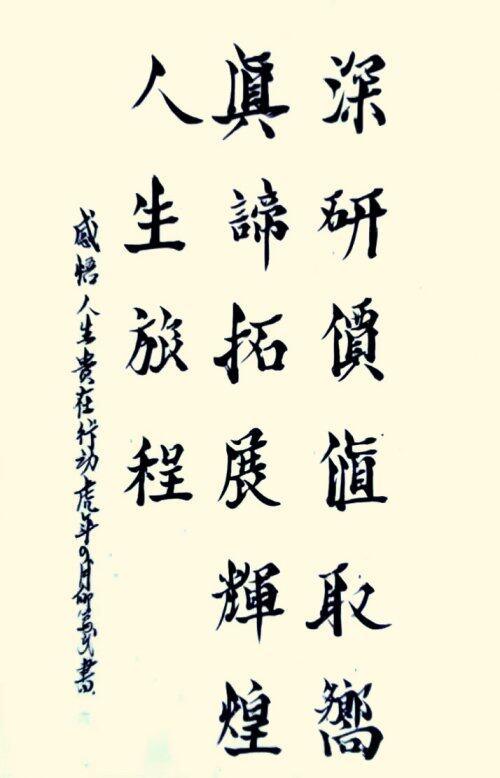 深研價值取嚮
眞諦拓展輝煌
人生旅程
感悟人生貴在行动虎年 月 書